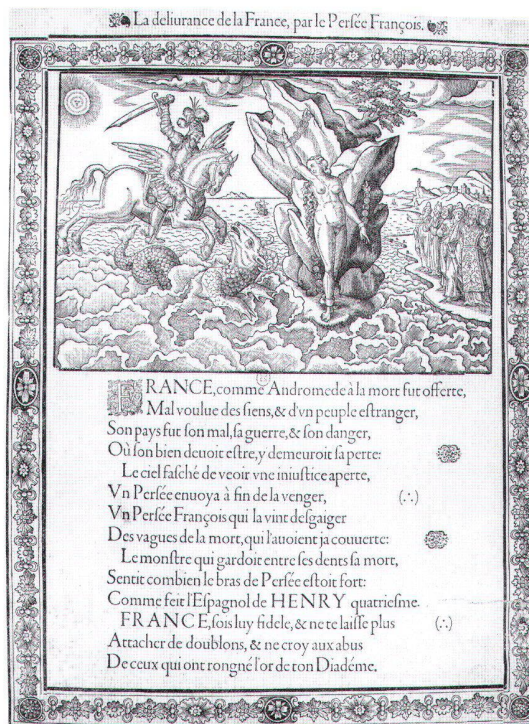 La deliurance de la France, par le Persée François.
FRANCE, comme Andromede à la mort fut offerte,
Mal voulue des siens, & d'vn peuple estranger,
Son pays fut son mal, sa guerre, & son danger,
Où son bien deuoit estre, y demeuroit sa perte:
Le ciel fasché de veoir vne iniustice aperte,
Vn Persée enuoya à fin de la venger,
Vn Persée François qui la vint desgaiger
Des vagues de la mort, qui l'auoient ja couuerte:
Le monstre qui gardoit entre ses dents sa mort,
Sentit combien le bras de Persée estoit fort:
Comme feit l'Espagnol de HENRY quatriesme.
FRANCE, sois luy fidele, & ne te laisse plus
Attacher de doublons, & ne croy aux abus
De ceux qui ont rongné l'or de ton Diadéme.